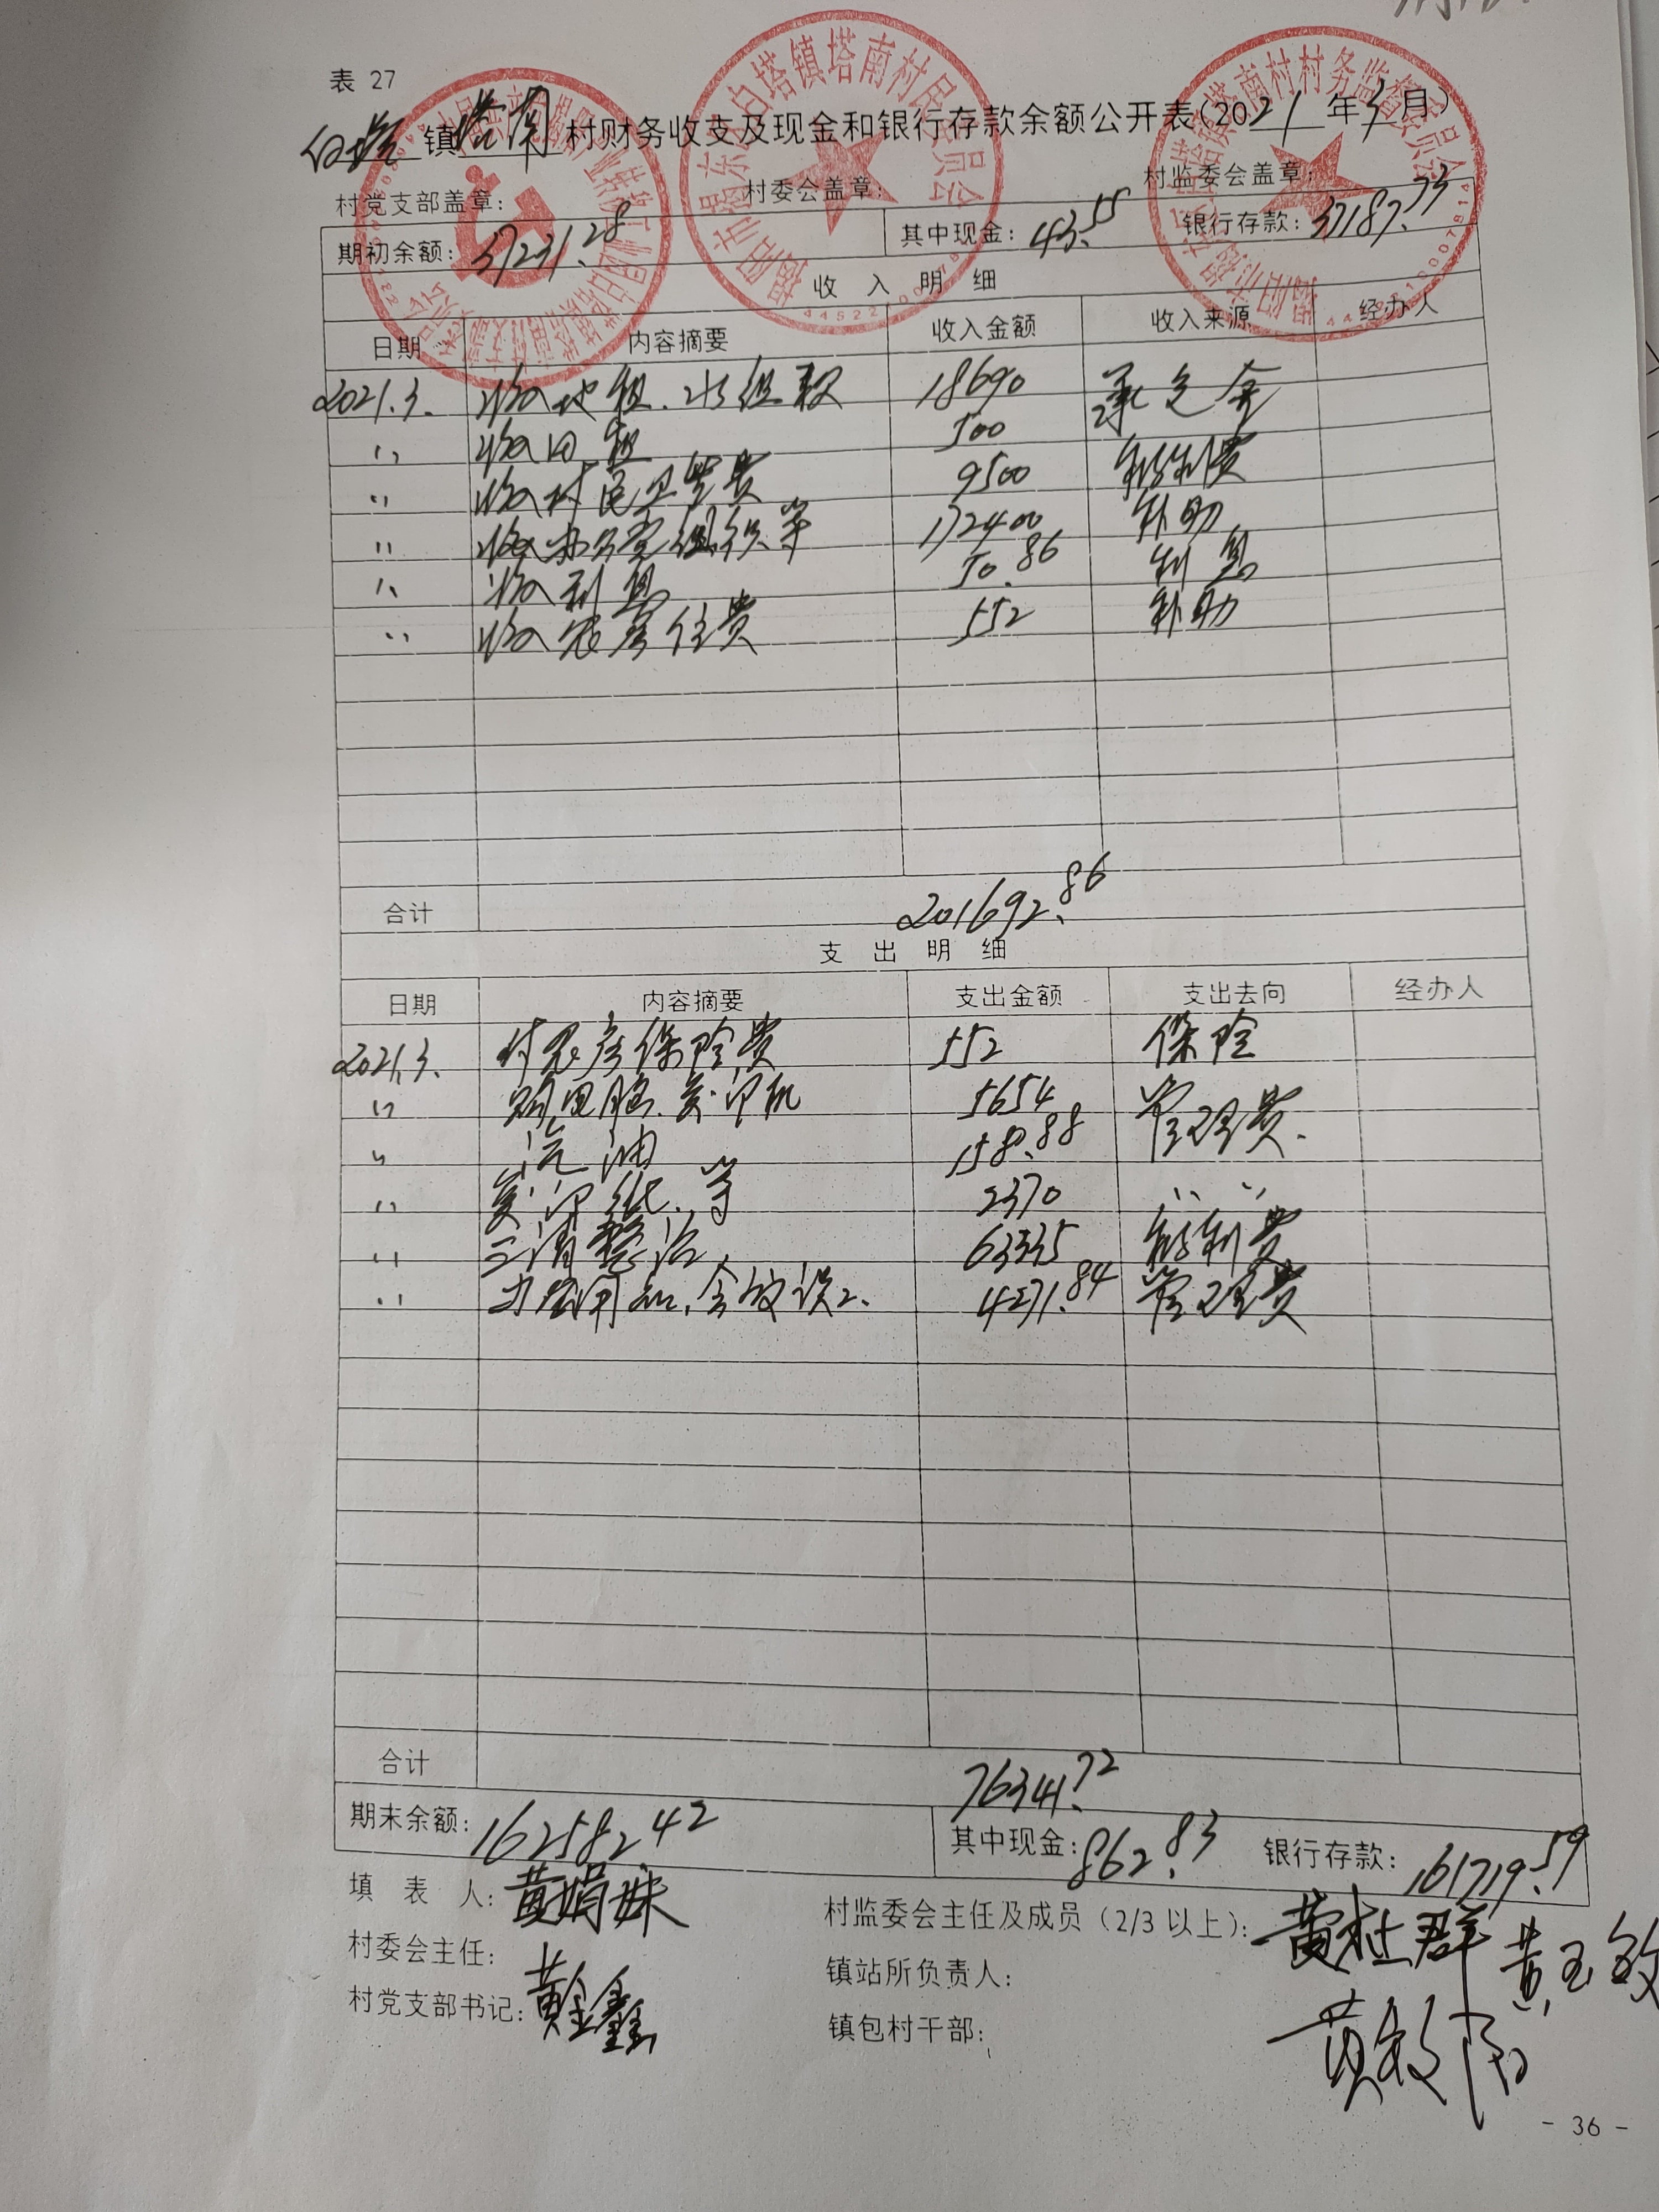 表 27
白塔 镇 塔南 村财务收支及现金和银行存款余额公开表(2021 年 3 月)
村党支部盖章: 村委会盖章: 村监委会盖章:
期初余额: 37231.28 其中现金: 43.55 银行存款: 37187.73
收 入 明 细
日期 内容摘要 收入金额 收入来源 经办人
2021.3. 收地租、 租款 18690 承包金
〃 收田租 500
〃 收村民卫生费 9500 福利费
〃 收办公室组织等 172400 补助
〃 收利息 50.86 利息
〃 收农房 费 552 补助
合计 201692.86
支 出 明 细
日期 内容摘要 支出金额 支出去向 经办人
2021.3. 付农房保险费 552 保险
〃 购电脑、复印机 5654 管理费
〃 汽油 158.88
〃 复印纸、等 2370 〃 〃
〃 三清整治 63335 福利费
〃 4271.84 管理费
合计 76341.72
期末余额: 162582.42 其中现金: 862.83 银行存款: 161719.59
填 表 人: 黄娟妹 村监委会主任及成员(2/3 以上): 黄杜群 黄玉
村委会主任: 镇站所负责人:
村党支部书记: 黄金鑫 镇包村干部:
- 36 -